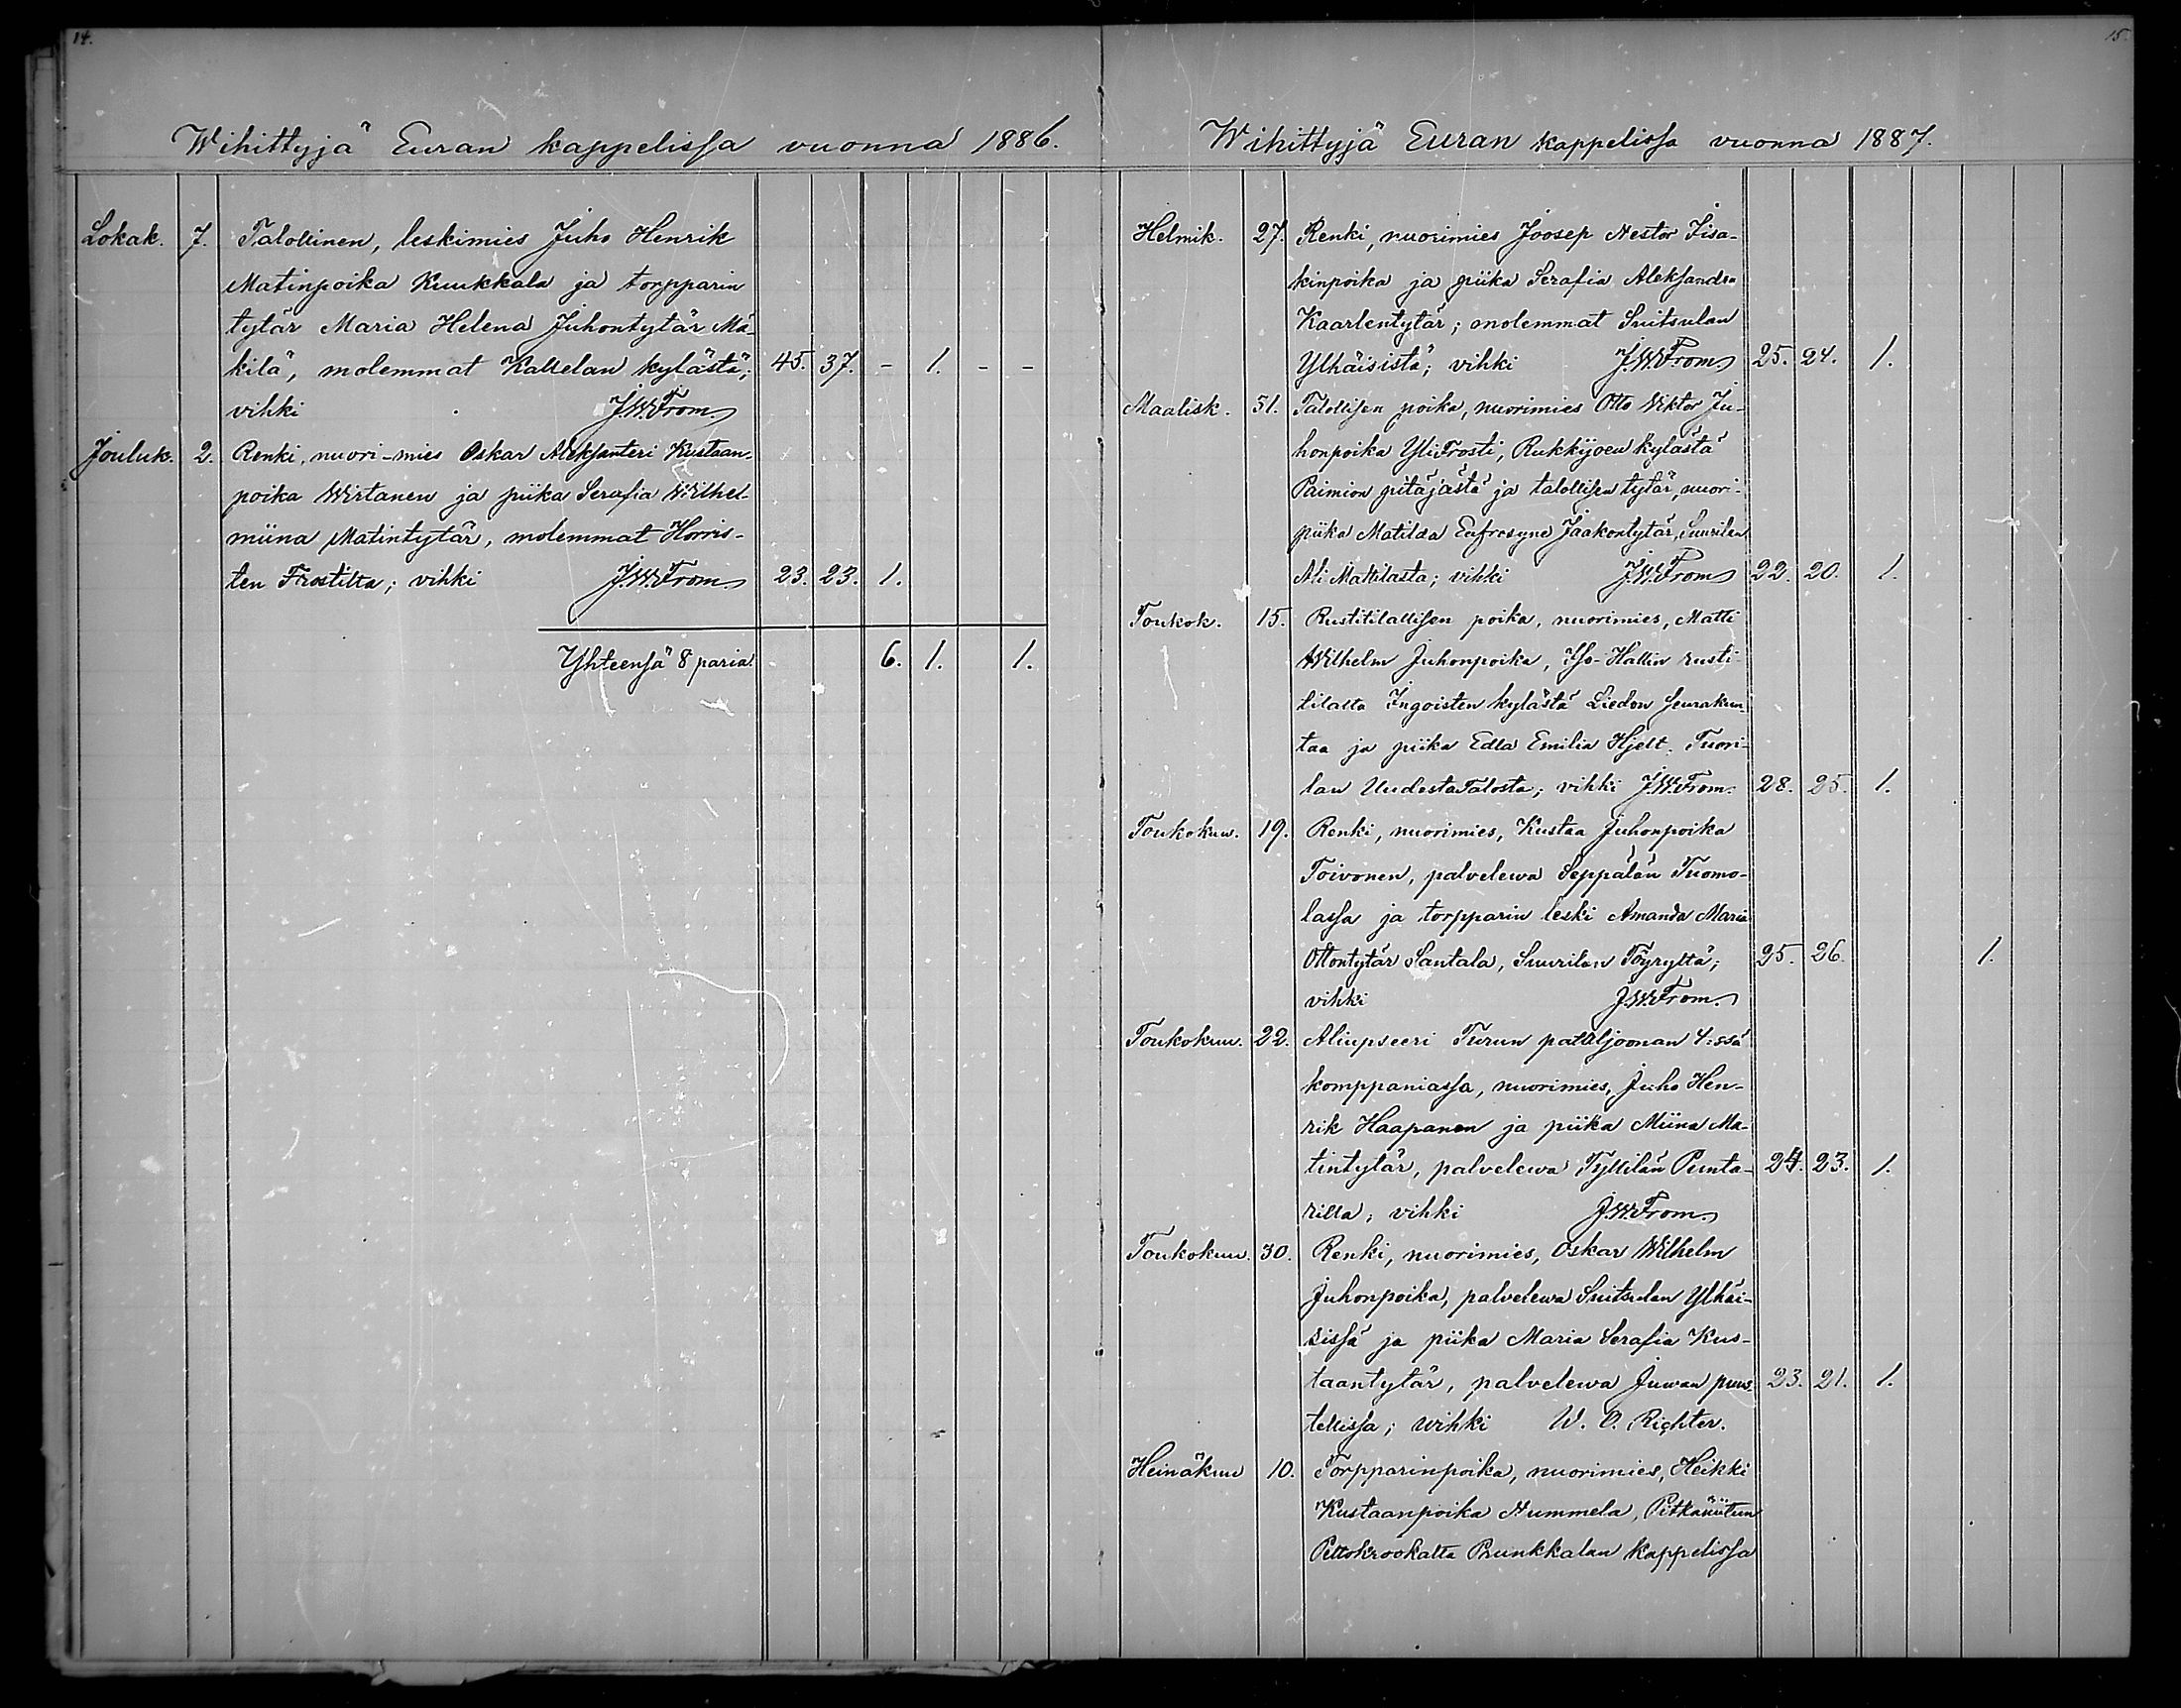 14.
Wihittyjä Euran kappelissa vuonna 1886.
Lokak. 7. Talollinen, leskimies Juho Henrik
Matinpoika Kuukkala ja torpparin
tytär Maria Helena Juhontytär Mä-
kilä, molemmat Kallelan kylästä; 45. 37. - 1. - -
vihki J.W.From.
Jouluk. 2. Renki, nuori-mies Oskar Aleksanteri Kustaan-
poika Wirtanen ja piika Serafia Wilhel-
miina Matintytär, molemmat Horris-
ten Frostilta; vihki J.W.From. 23. 23. 1.
Yhteensä 8 paria. 6. 1. 1.
15.
Wihittyjä Euran kappelissa vuonna 1887.
Helmik. 27. Renki, nuorimies Joosep Nestor Iisa-
kinpoika ja piika Serafia Aleksandra
Kaarlentytär; molemmat Suitsulan
Ylhäisistä; vihki J.W.From. 25. 24. 1.
Maalisk. 31. Talollisen poika, nuorimies Otto Viktor Ju-
honpoika YliFrosti, Rukkijoen kylästä
Paimion pitäjästä ja talollisen tytär, nuori-
piika Matilda Eufrosyne Jaakontytär, Suurilan
Ali Mattilasta; vihki J.W.From 22. 20. 1.
Toukok. 15. Rustitilallisen poika, nuorimies, Matti
Wilhelm Juhonpoika, Iso-Hallin rusti-
tilalta Ingoisten kylästä Liedon seurakun-
taa ja piika Edla Emilia Hjelt. Tuori-
lan UudestaTalosta; vihki J.W.From. 28. 25. 1.
Toukokuu. 19. Renki, nuorimies, Kustaa Juhonpoika
Toivonen, palvelewa Seppälän Tuomo-
lassa ja torpparin leski Amanda Maria
Ottontytär Santala, Suurilan Töyryltä; 25. 26. 1.
vihki J.W.From.
Toukokuu. 22. Aliupseeri Turun pataljoonan 4:ssä
komppaniassa, nuorimies, Juho Hen-
rik Haapanen ja piika Miina Ma-
tintytär, palvelewa Tyllilän Punta- 24. 23. 1.
rilla; vihki J.W.From.
Toukokuu. 30. Renki, nuorimies, Oskar Wilhelm
Juhonpoika, palvelewa Suitsulan Ylhäi-
sissä ja piika Maria Serafia Kus-
taantytär, palvelewa Juwan puus- 23. 21. 1.
tellissa; wihki W. O. Richter.
Heinäkuu 10. Torpparinpoika, nuorimies, Heikki
Kustaanpoika Nummela, Pitkäniitun
Peltokrookalta Prunkkalan kappelissa